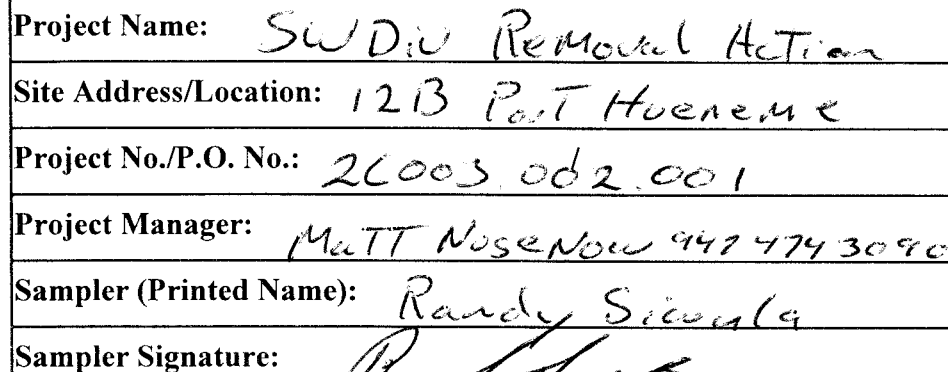 Project Name: SWDiv Removal Action
Site Address/Location: 12B Port Hueneme
Project No./P.O. No.: 2C003.002.001
Project Manager: Matt Nosenow
Sampler (Printed Name): Randy
Sampler Signature: